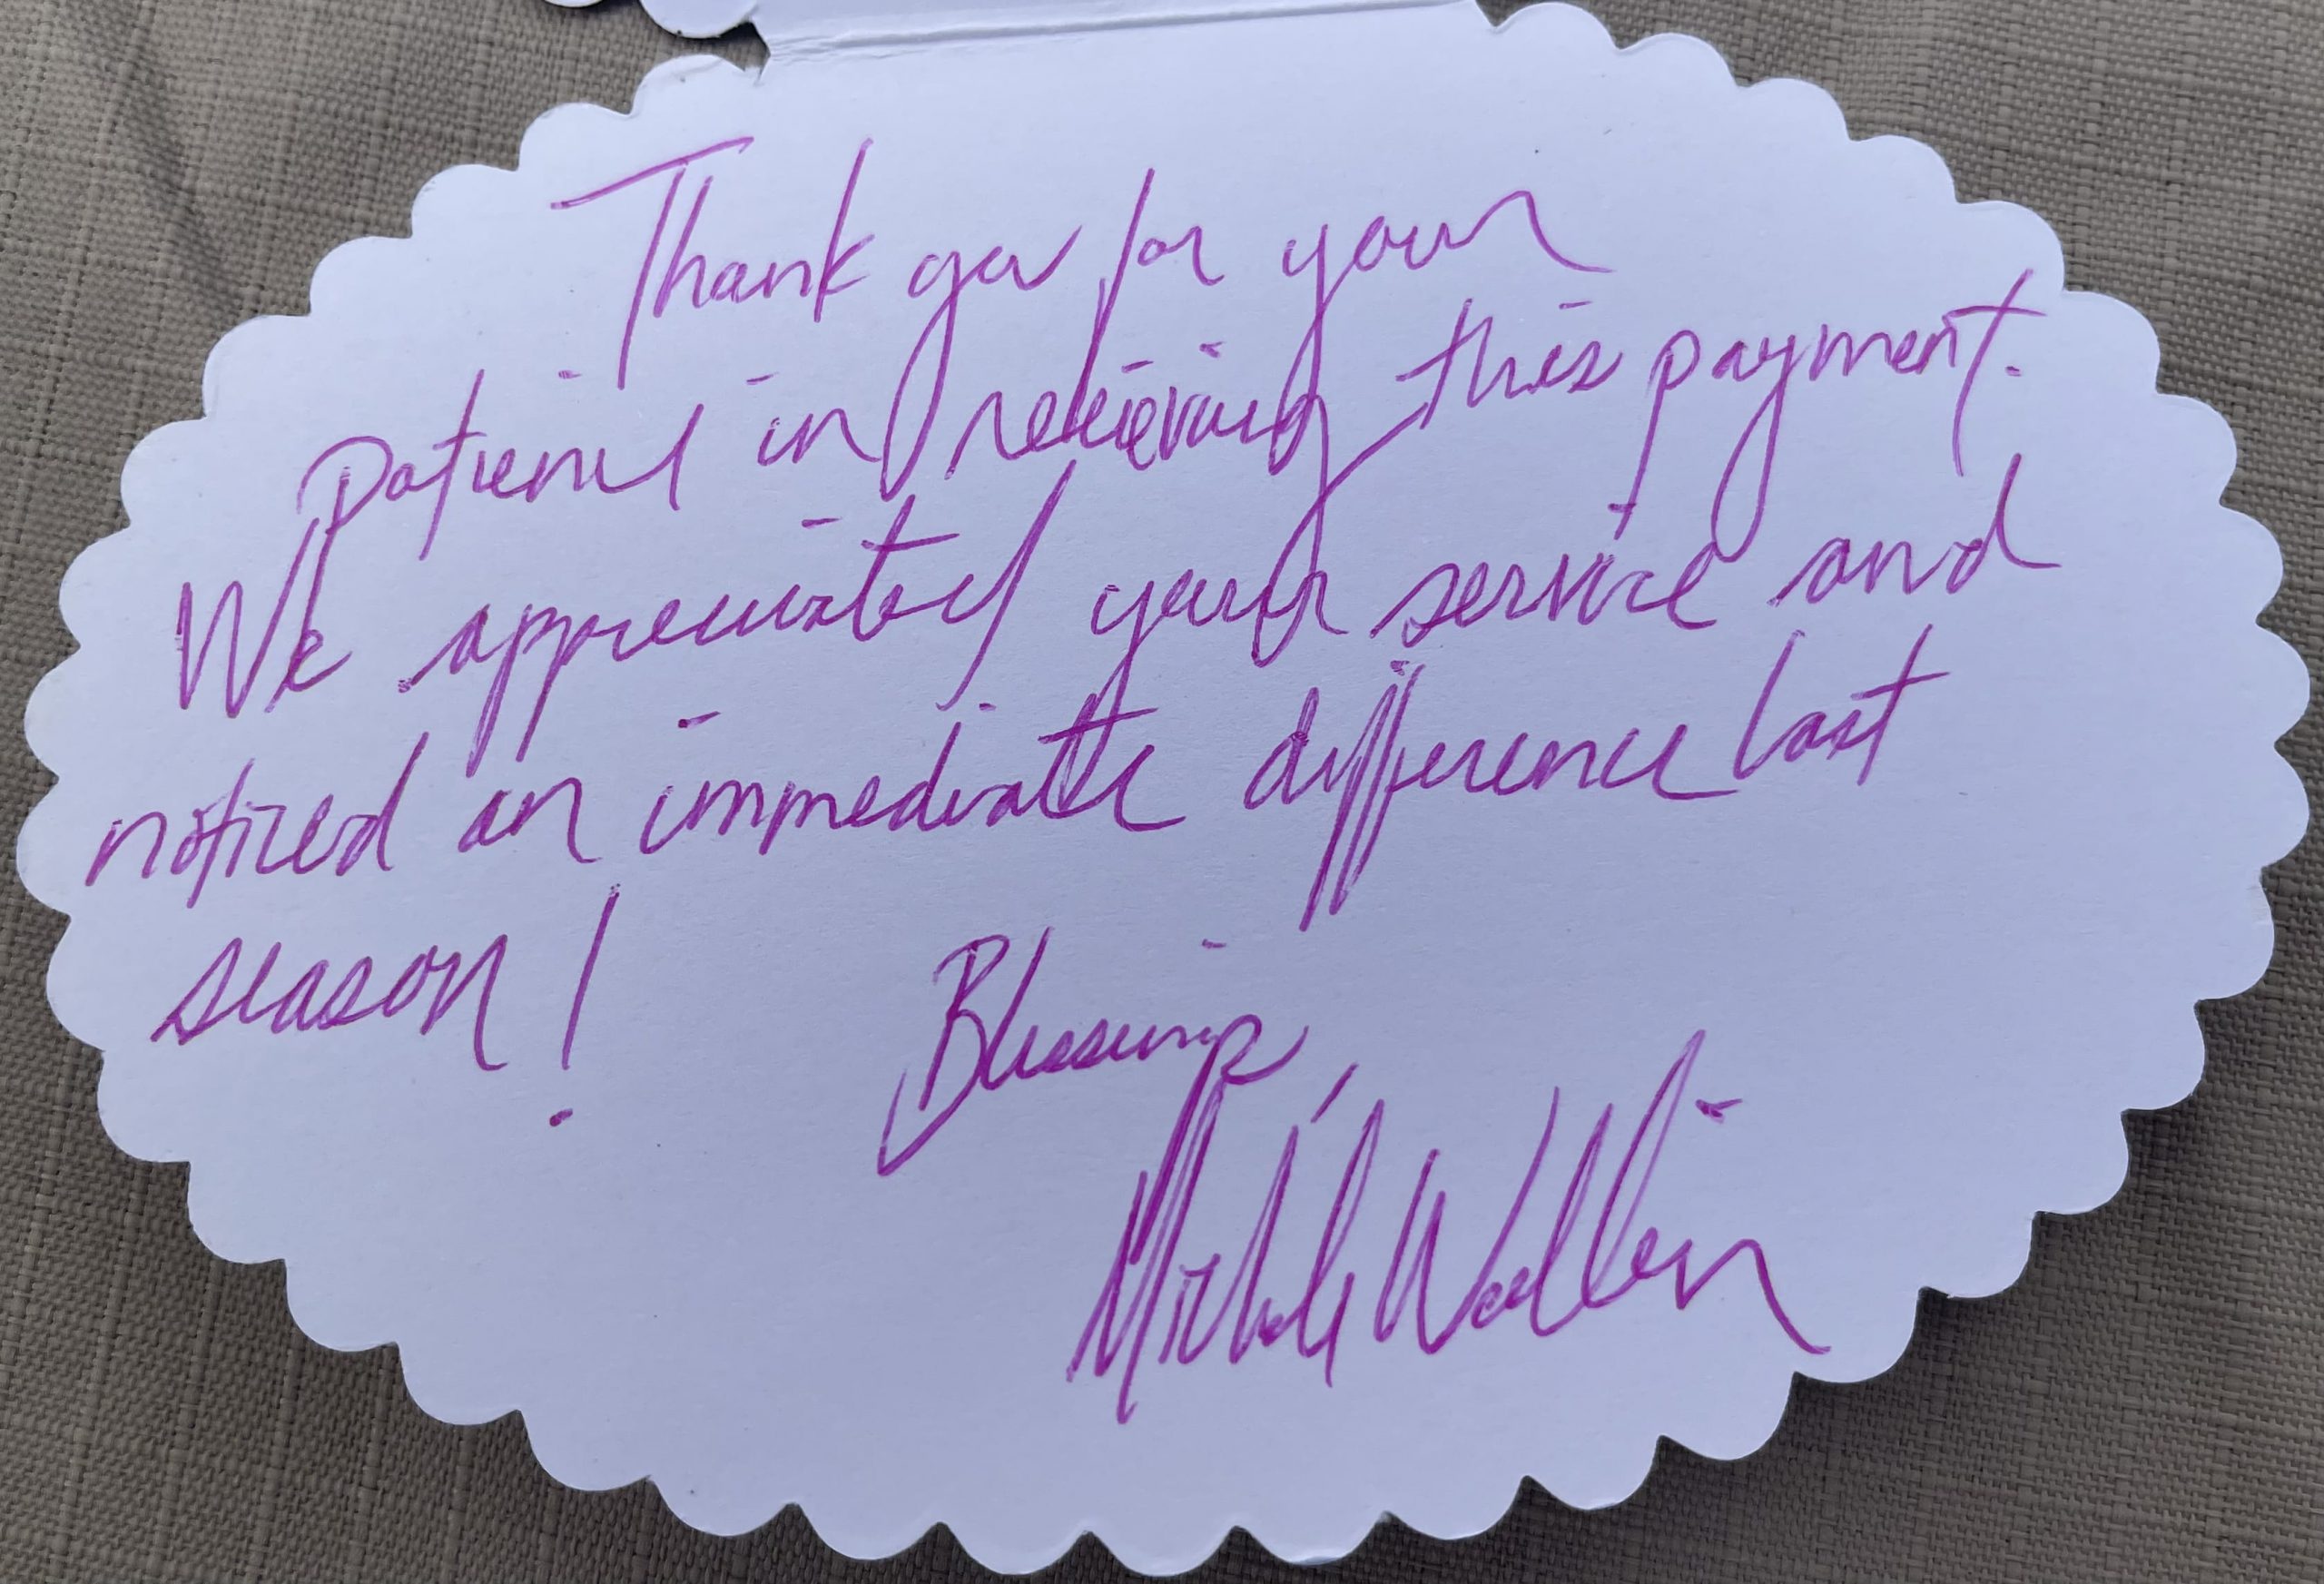 Thank you for your
patience in receiving this payment.
We appreciated your service and
noticed an immediate difference last
season!
Blessings,
Michele Wallin